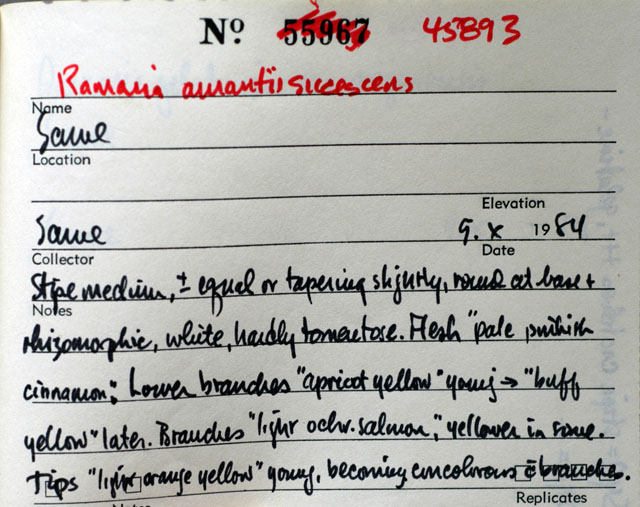 Nº 55967 45893
Ramaria aurantiisiccescens
Name
Same
Location
Elevation
Same 9. x 1984
Collector Date
Stipe medium, ± equal or tapering slightly, round at base +
Notes
rhizomorphic, white, hardly tomentose. Flesh "pale pinkish
cinnamon". Lower branches "apricot yellow" young → "buff
yellow" later. Branches "light ochr. salmon," yellower in some.
Tips "light orange yellow" young, becoming concolorous c̄ branches.
Replicates